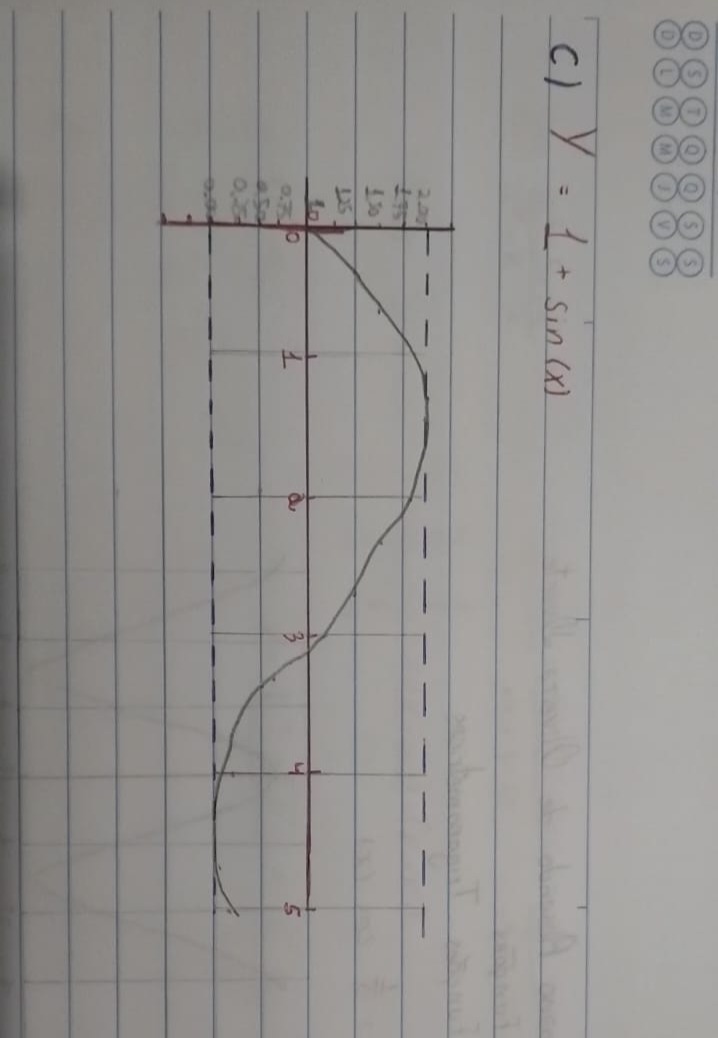 D S T Q Q S S
D L M M J V S
C) Y = 1 + sin(x)
2.00
1.75
1.50
1.25
1.0
0.75
0.50
0.25
0.0
0 1 2 3 4 5